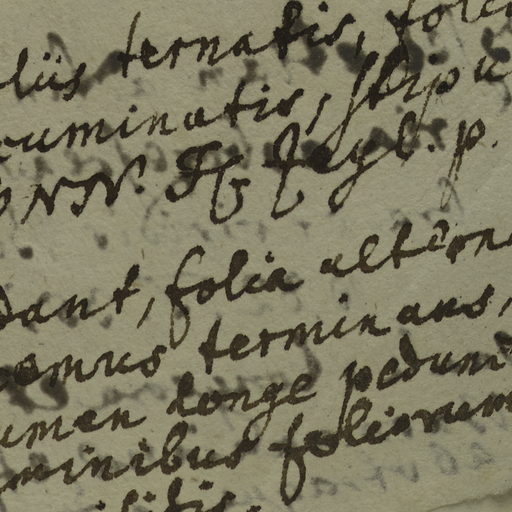 liis ternatis, folio
cuminatis, stipu
NN. Fl. Zeyl. p.
dant, folia altern
cemus terminans,
umen longe pedun
minibus foliorum